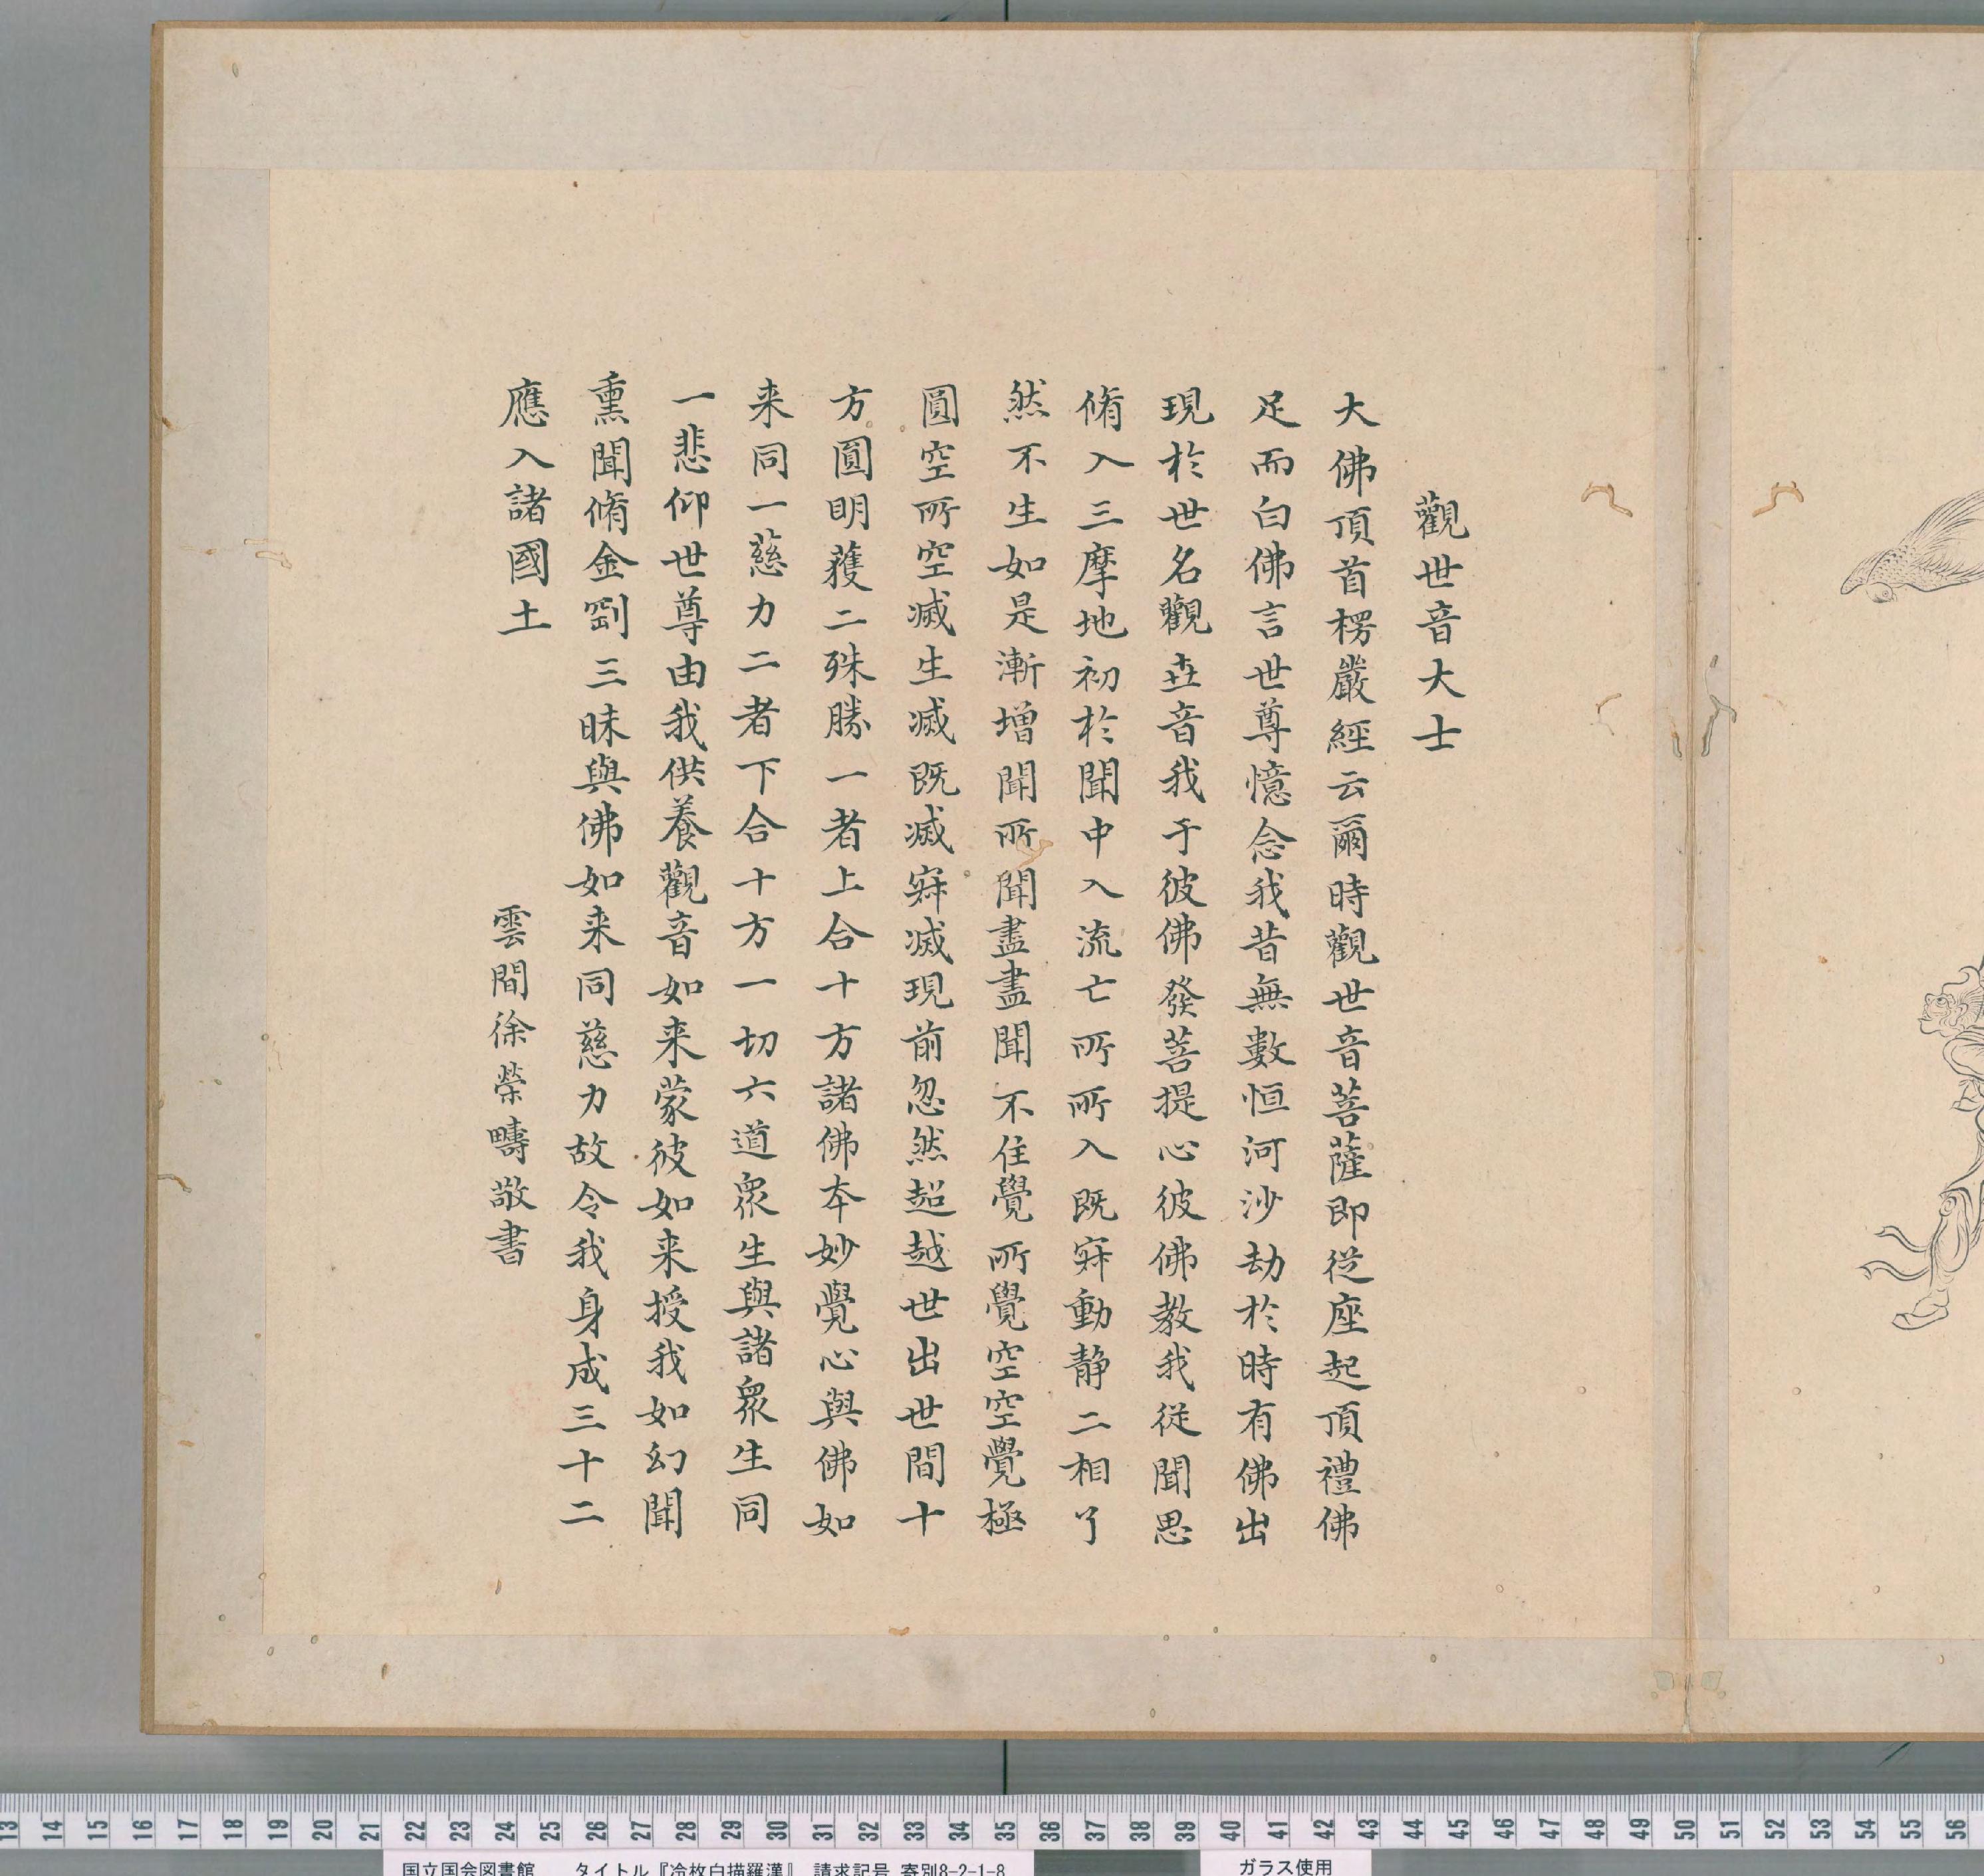 觀世音大士
大佛頂首楞嚴經云爾時觀世音菩薩即從座起頂禮佛
足而白佛言世尊憶念我昔無數恒河沙劫於時有佛出
現於世名觀卋音我于彼佛發菩提心彼佛教我從聞思
脩入三摩地初於聞中入流亡所所入既寂動静二相了
然不生如是漸增聞所聞盡盡聞不住覺所覺空空覺極
圓空所空滅生滅既滅寂滅現前忽然超越世出世間十
方圓明獲二殊勝一者上合十方諸佛本妙覺心與佛如
来同一慈力二者下合十方一切六道衆生與諸衆生同
一悲仰世尊由我供養觀音如来蒙彼如来授我如幻聞
熏聞脩金剛三昧與佛如来同慈力故令我身成三十二
應入諸國土
雲間徐榮疇敬書
13 14 15 16 17 18 19 20 21 22 23 24 25 26 27 28 29 30 31 32 33 34 35 36 37 38 39 40 41 42 43 44 45 46 47 48 49 50 51 52 53 54 55 56
国立国会図書館 タイトル『冷枚白描羅漢』 請求記号 寄別8-2-1-8
ガラス使用